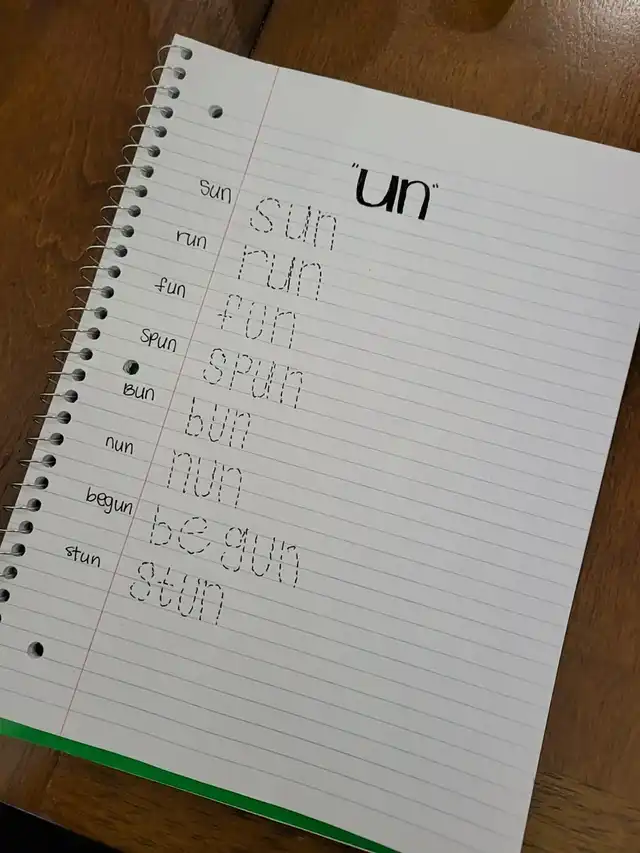 "un"
sun sun
run run
fun fun
spun spun
Bun bun
nun nun
begun begun
stun stun